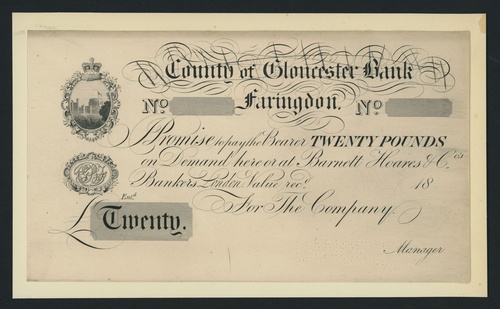 County of Gloucester Bank
No Faringdon. No
I Promise to pay the Bearer TWENTY POUNDS
on Demand here or at Barnett Hoares & Cos
Bankers London Value recd. 18
Entd. For The Company.
£ Twenty.
Manager